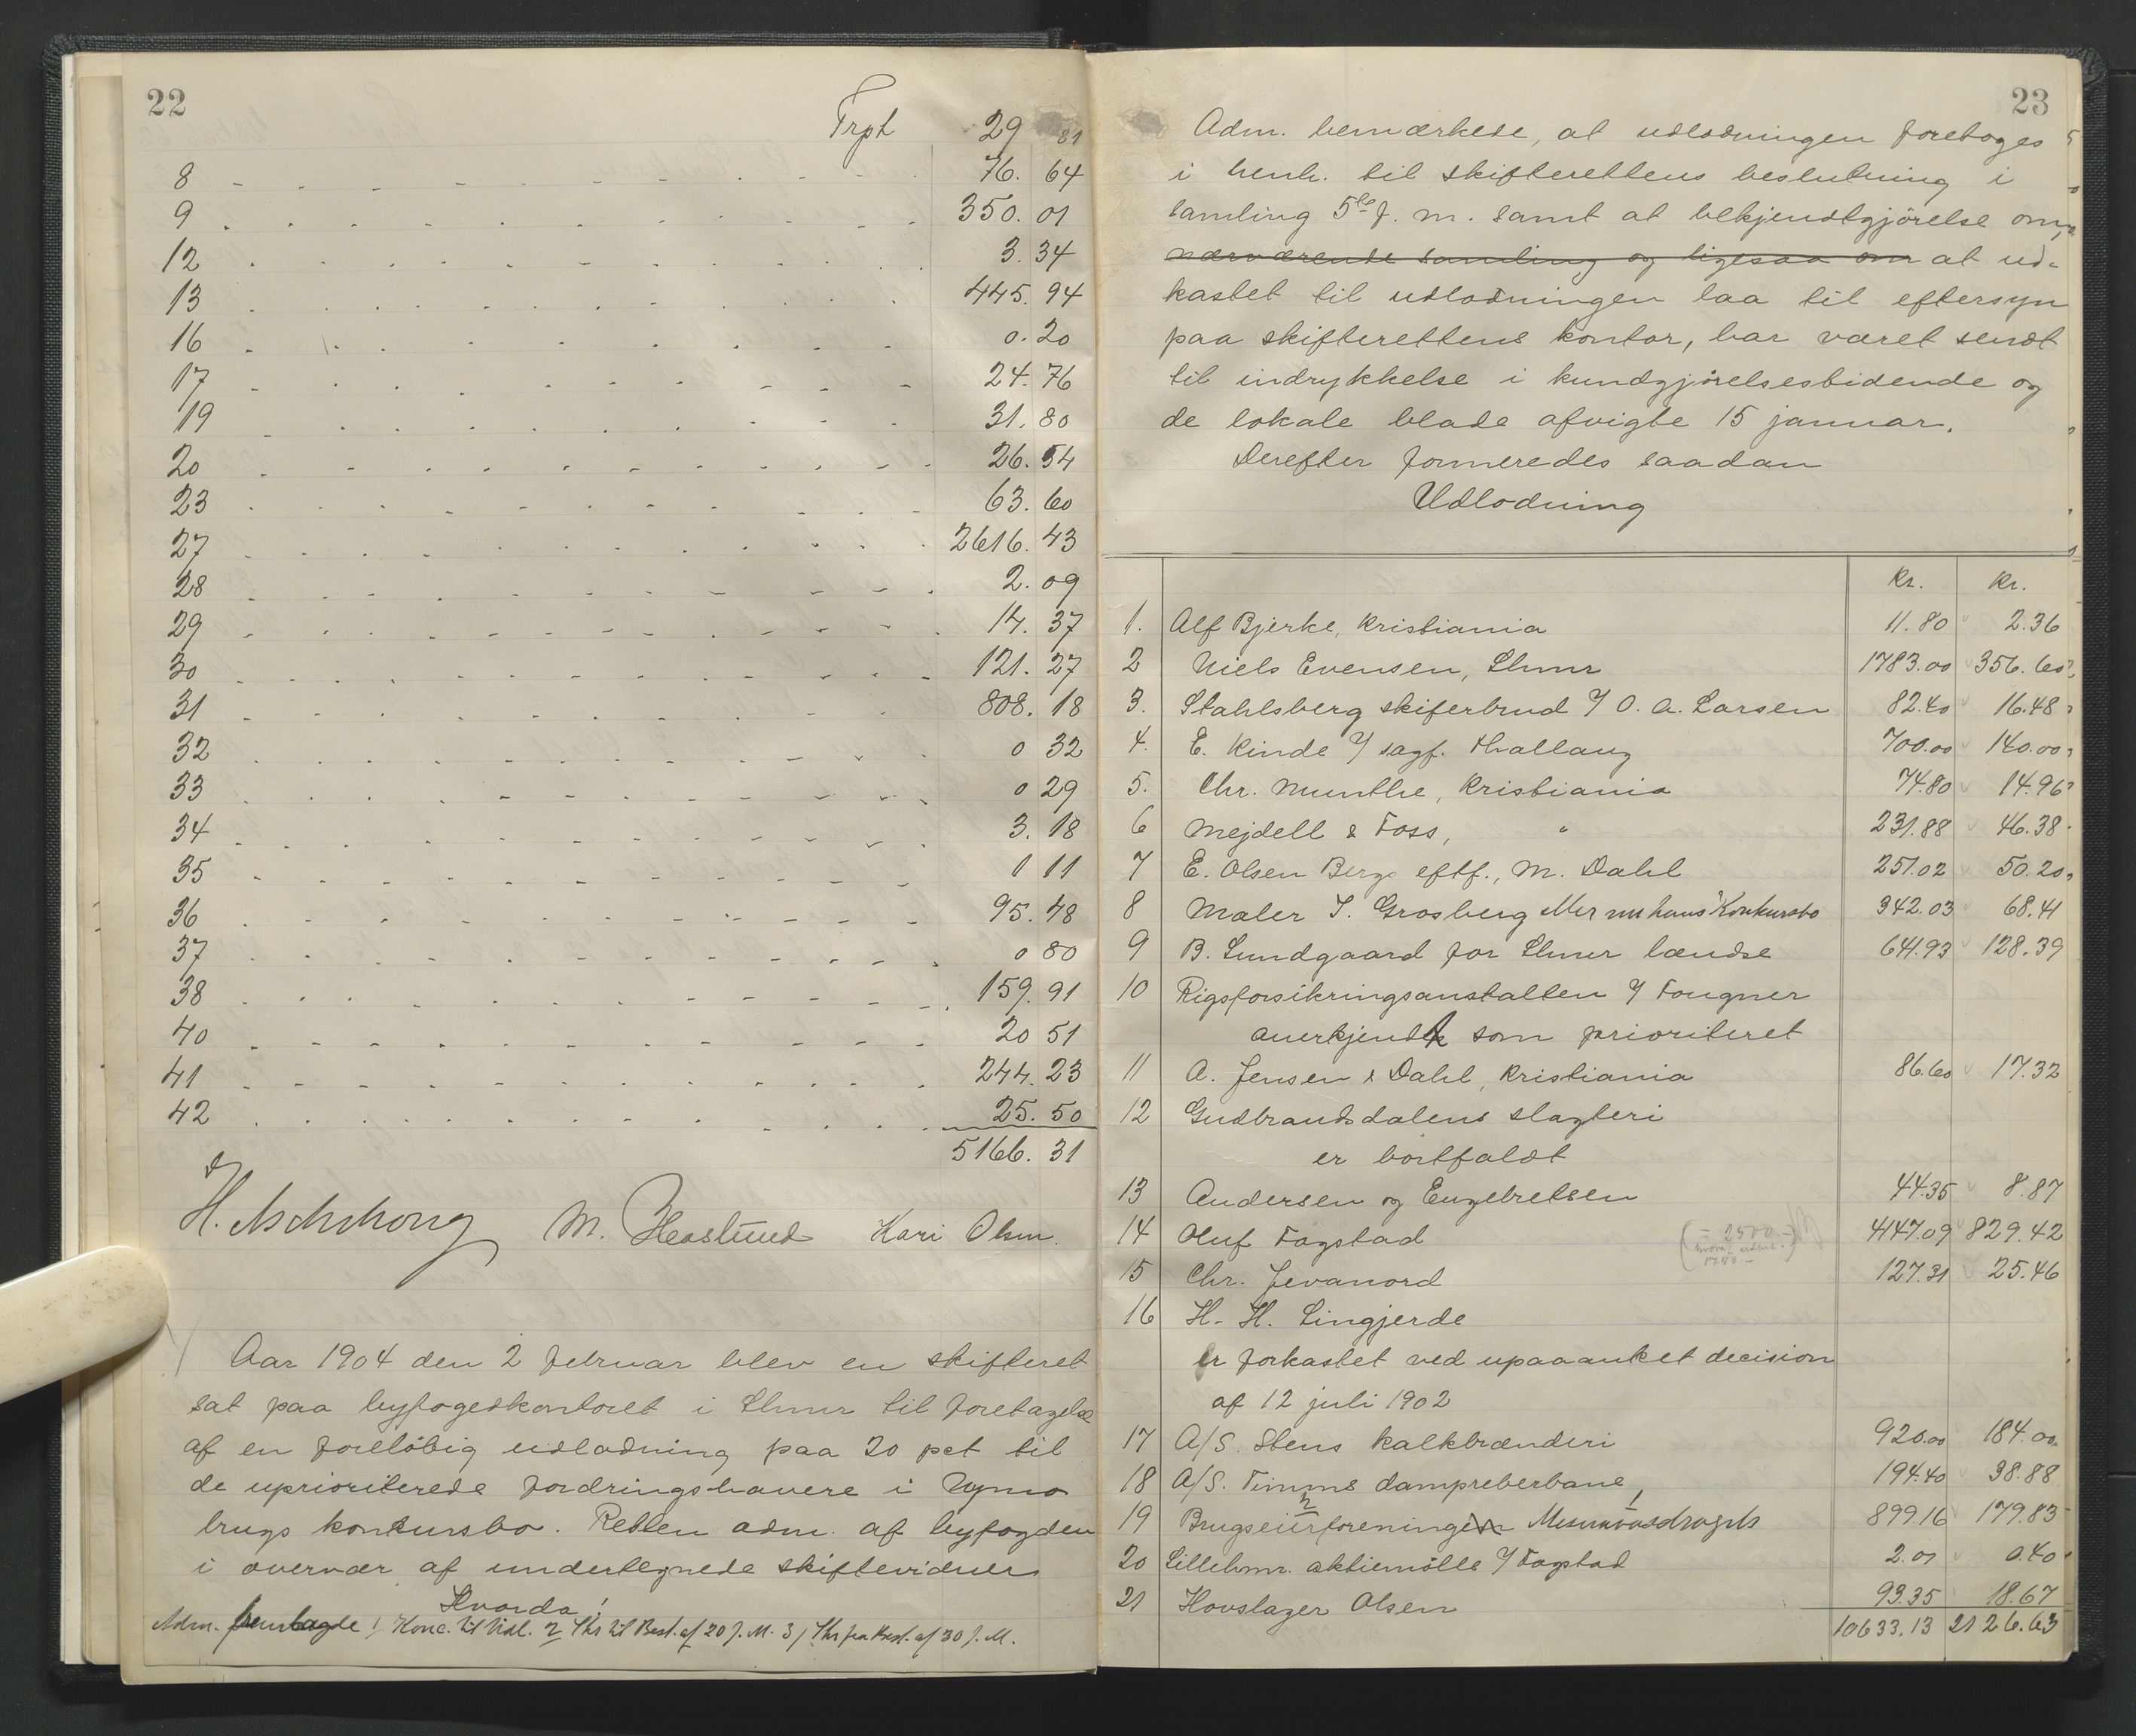 22
Trph 29 81
8 76. 64
9 350. 01
12 3. 34
13 445. 94
16 0. 20
17 24. 76
19 31. 80
20 26. 54
23 63. 60
27 2616. 43
28 2. 09
29 14. 37
30 121. 27
31 808. 18
32 0 32
33 0 29
34 3. 18
35 1 11
36 95. 48
37 0 80
38 159. 91
40 20 51
41 244. 23
42 25. 50
5166. 31
M. Haslund Kari Olsen.
Aar 1904 den 2 februar blev en skifteret
sat paa byfogedkontoret i Lhmr til foretagelse
af en foreløbig udlodning paa 20 pct til
de uprioriterede fordringshavere i
brugs konkursbo. Retten adm. af byfogden
i overvær af undertegnede skiftevidner
Hvorda!
Adm. fremlagde 1, Konc. til Udl. 2, Skr til Best. af 20 f. M. 3, Skr fra Best. af 30 f. M.
23
Adm. bemærkede, at udlodningen foretoges
i henh. til skifterettens beslutning i
samling 5te f. m. samt at bekjendtgjørelse om,
nærværende samling og ligesaa om at ud-
kastet til udlodningen laa til eftersyn
paa skifterettens kontor, har været sendt
til indrykkelse i kundgjørelsestidende og
de lokale blade afvigte 15 januar.
Derefter formeredes saadan
Udlodning
Kr. Kr.
1. Alf Bjerke, Kristiania 11.80 2.36
2 Niels Evensen, Lhmr 1783.00 356.60
3. Stahlsberg skiferbrud v/ O. A. Larsen 82.40 16.48
4. E. Kinde v/ sagf. Thallaug 700.00 140.00
5. Chr. Munthe, Kristiania 74.80 14.96
6 Mejdell & Foss, " 231.88 46.38
7 E. Olsen Bergs eftf., M. Dahl 251.02 50.20
8 Maler J. Grosberg eller nu hans Konkursbo 342.03 68.41
9 B. Lundgaard for Lhmr lændse 641.93 128.39
10 Rigsforsikringsanstalten v/ Fougner
anerkjendt som prioriteret
11 A. Jensen & Dahl, Kristiania 86.60 17.32
12 Gudbrandsdalens slagteri
er bortfaldt
13 Andersen og Engebretsen 44.35 8.87
14 Oluf Fagstad (- 2500.-) 4147.09 829.42
15 Chr. Jevanord 127.31 25.46
16 H. H. Lingjerde
er forkastet ved upaaanket decision
af 12 juli 1902
17 A/S. Stens kalkbrænderi 920.00 184.00
18 A/S. Timms dampreberbane, 194.40 38.88
19 Brugseierforeningen Mesnavasdragets 899.16 179.83
20 Lillehmr. aktiemølle v/ Fagstad 2.01 0.40
21 Hovslager Olsen 93.35 18.67
10633.13 2126.63